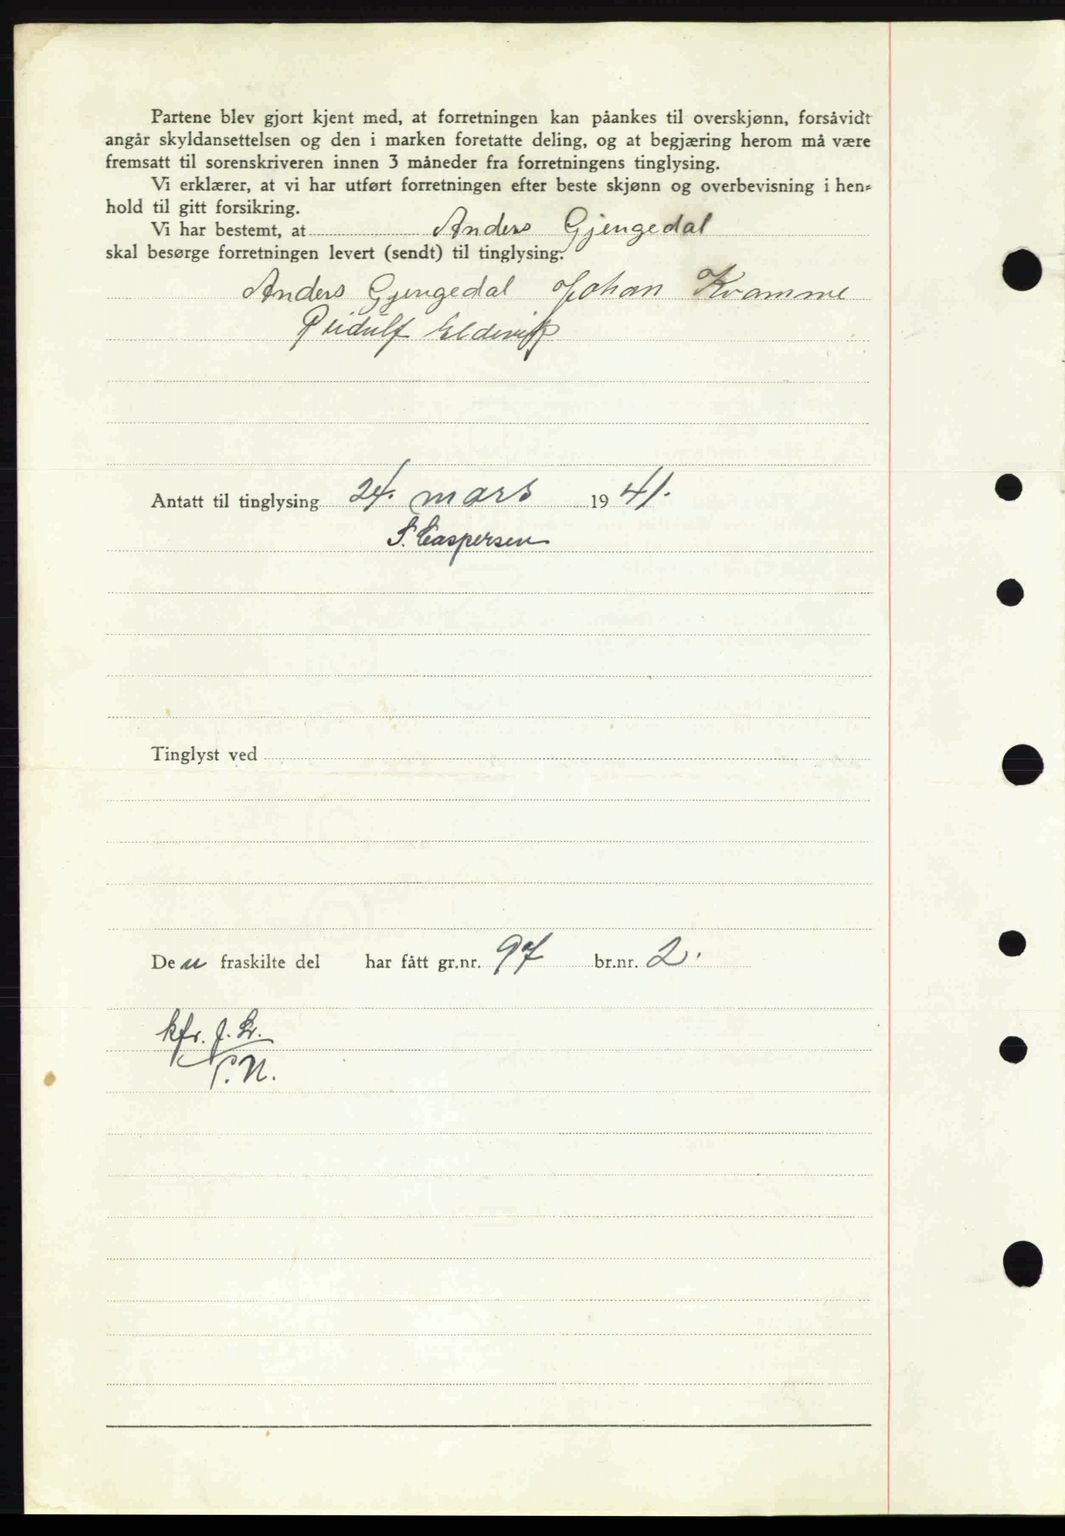 Partene blev gjort kjent med, at forretningen kan påankes til overskjønn, forsåvidt
angår skyldansettelsen og den i marken foretatte deling, og at begjæring herom må være
fremsatt til sorenskriveren innen 3 måneder fra forretningens tinglysing.
Vi erklærer, at vi har utført forretningen efter beste skjønn og overbevisning i hen-
hold til gitt forsikring.
Vi har bestemt, at Anders Gjengedal
skal besørge forretningen levert (sendt) til tinglysing:
Anders Gjengedal Johan Kvamme
Reidulf
Antatt til tinglysing 24. mars 1941.
S. Caspersen
Tinglyst ved
Den fraskilte del har fått gr.nr. 97 br.nr. 2.
kfr. J. Kr.
P.N.